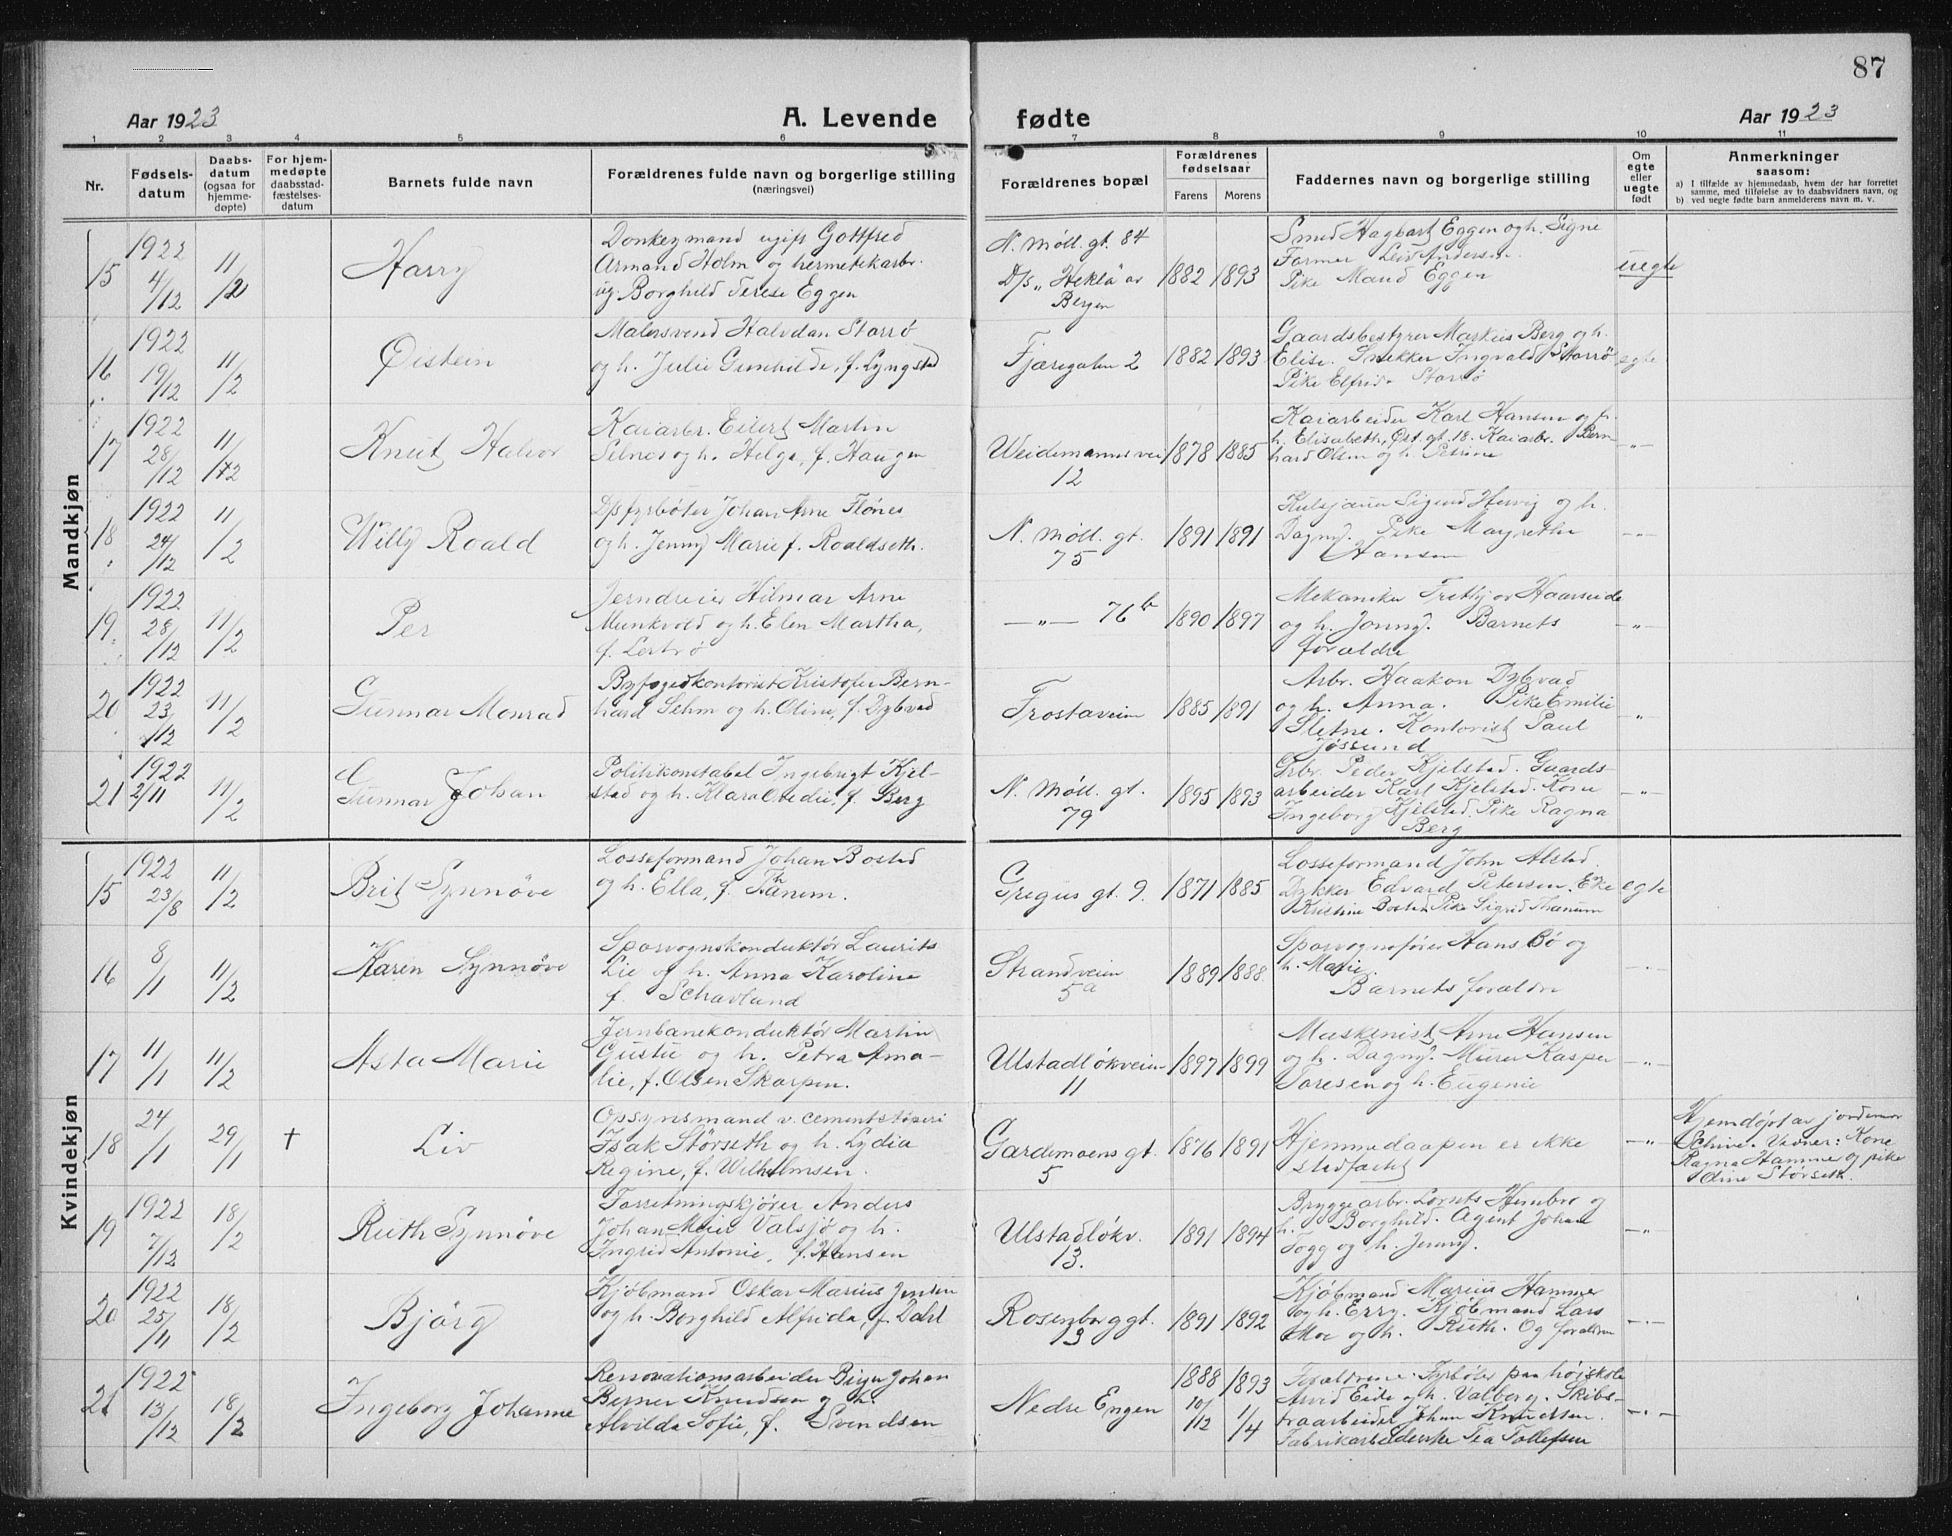 87
Aar 1923
A. Levende fødte
Aar 1923
1 2 3 4 5 6 7 8 9 10 11
Nr.
Fødsels-
datum
Daabs-
datum
(ogsaa for
hjemme-
døpte)
For hjem-
medøpte
daabsstad-
fæstelses-
datum
Barnets fulde navn
Forældrenes fulde navn og borgerlige stilling
(næringsvei)
Forældrenes bopæl
Forældrenes
fødselsaar
Farens Morens
Faddernes navn og borgerlige stilling
Om
egte
eller
uegte
født
Anmerkninger
saasom:
a) I tilfælde av hjemmedaab, hvem der har forrettet
samme, med tilføielse av to daabsvidners navn, og
b) ved uegte fødte barn anmelderens navn m. v.
Mandkjøn
15 1922 4/12 11/2 Harry
Donkeymand ugift Gottfred
Armand Holm og hermetikarbr.
ug. Borghild Terese Eggen
N. Möll. gt. 84
D/s „Hekla" av
Bergen
1882 1893
Smed Hagbart Eggen og h. Signe
Former Leif Andersen
Pike Maud Eggen
uegte
16 1922 19/12 11/2 Øistein
Malersvend Halvdan Starrö
og h. Julie Gunhilde, f. Lyngstad
Fjæregaten 2
1882 1893
Gaardsbestyrer Markus Berg og h.
Elise. Snekker Ingvald Starrö
Pike Elfrida Starrö
egte
17 1922 28/12 11/2 Knut Halvor
Kaiarbr. Eilert Martin
Selnes og h. Helga, f. Haugen
Weidemannsvei
12
1878 1885
Kaiarbeider Karl Hansen og
h. Elisabeth, Øst. gt. 18. Kaiarbr. Bern
hard Olsen og h. Petrine
-"-
18 1922 24/12 11/2 Willy Roald
D/s fyrbøter Johan Arne Flönes
og h. Jenny Marie f. Roaldseth.
N. Möll. gt.
75
1891 1891
Sigurd og h.
Dagny. Pike Margrethe
Hansen
-"-
19 1922 28/12 11/2 Per
Jerndreier Hilmar Arne
Munkvold og h. Elen Martha,
f. Lerbrö
-"- 76b
1890 1897
Mekaniker Fritjov
og h. Jenny. Barnets
forældre
-"-
20 1922 23/12 11/2 Gunnar Monrad
Byfogedkontorist Kristofer Bern-
hard Sehm og h. Oline, f. Dybvad
Frostaveien
1885 1891
Arbr. Haakon Dybvad
og h. Anna. Pike Emilie
Sletne. Kontorist Paul
Jössund
-"-
21 1922 2/11 11/2 Gunnar Johan
Politikonstabel Ingebrigt Kjel-
stad og h. Klara Ovedie, f. Berg
N. Möll. gt.
79
1895 1893
Arbr. Peder Kjelstad. Gaards-
arbeider Karl Kjelstad. Kone
Ingeborg Kjelstad. Pike Ragna
Berg
-"-
Kvindekjøn
15 1922 23/8 11/2 Brit Synnöve
Losseformand Johan Bostad
og h. Ella, f. Thanem.
Gregus gt. 9.
1871 1885
Losseformand John Alstad.
Dykker Edvard Petersen. Eke
Kristine Bostad Pike Sigrid Thanum
egte
16 8/1 11/2 Karen Synnöve
Sporvognskonduktör Laurits
Lie og h. Anna Karoline
f. Schavland
Strandveien
5a
1889 1888.
Sporvognsfører Hans Bö og
h. Marie.
Barnets forældre
-"-
17 11/1 11/2 Asta Marie
Jernbanekonduktör Martin
Gustu og h. Petra Ama-
lie, f. Olsen Skarpen.
Ulstadlökveien
11
1897 1899
Maskinist Arne Hansen
og h. Dagny. Murer Kasper
Toresen og h. Eugenie
-"-
18 24/1 29/1 + Liv
Opsynsmand v. cementstøperi
Isak Störseth og h. Lydia
Regine, f. Wilhelmsen.
Gardemoens gt.
5
1876 1891
Hjemmedaapen er ikke
stadfæstet
-"-
Hjemdøpt av jordemor
Schive. Vidner: Kone
Ragna Hammer og pike
Oline Störseth.
19 1922 7/12 18/2 Ruth Synnöve
Forretningskjører Anders
Johan Meier Valsjö og h.
Ingrid Antonie, f. Hansen
Ulstadlökv.
13.
1891 1894
Bryggearbr. Lornts Hembre og
h. Borghild. Agent Johan
Fogg og h. Jenny.
-"-
20 1922 25/11 18/2 Bjórg
Kjöbmand Oskar Marius Jensen
og h. Borghild Alfrida, f. Dahl
Rosenborg gt.
3
1891 1892
Kjöbmand Marius Hammer
og h. Erry. Kjöbmand Lars
Moe og h. Ruth. Og forældrene
-"-
21 1922 13/12 18/2 Ingeborg Johanne
Renovationsarbeider Birger Johan
Berner Knudsen og h.
Alvilda Sofie, f. Svendsen
Nedre Engen
1888 10/12 1893 1/4
Forældrene. Fyrbøter paa høiskole
Arvid Eide og h. Valborg. Skibs-
traarbeider Johan Knudsen.
Fabrikarbeiderske Tea Tollefsen
-"-